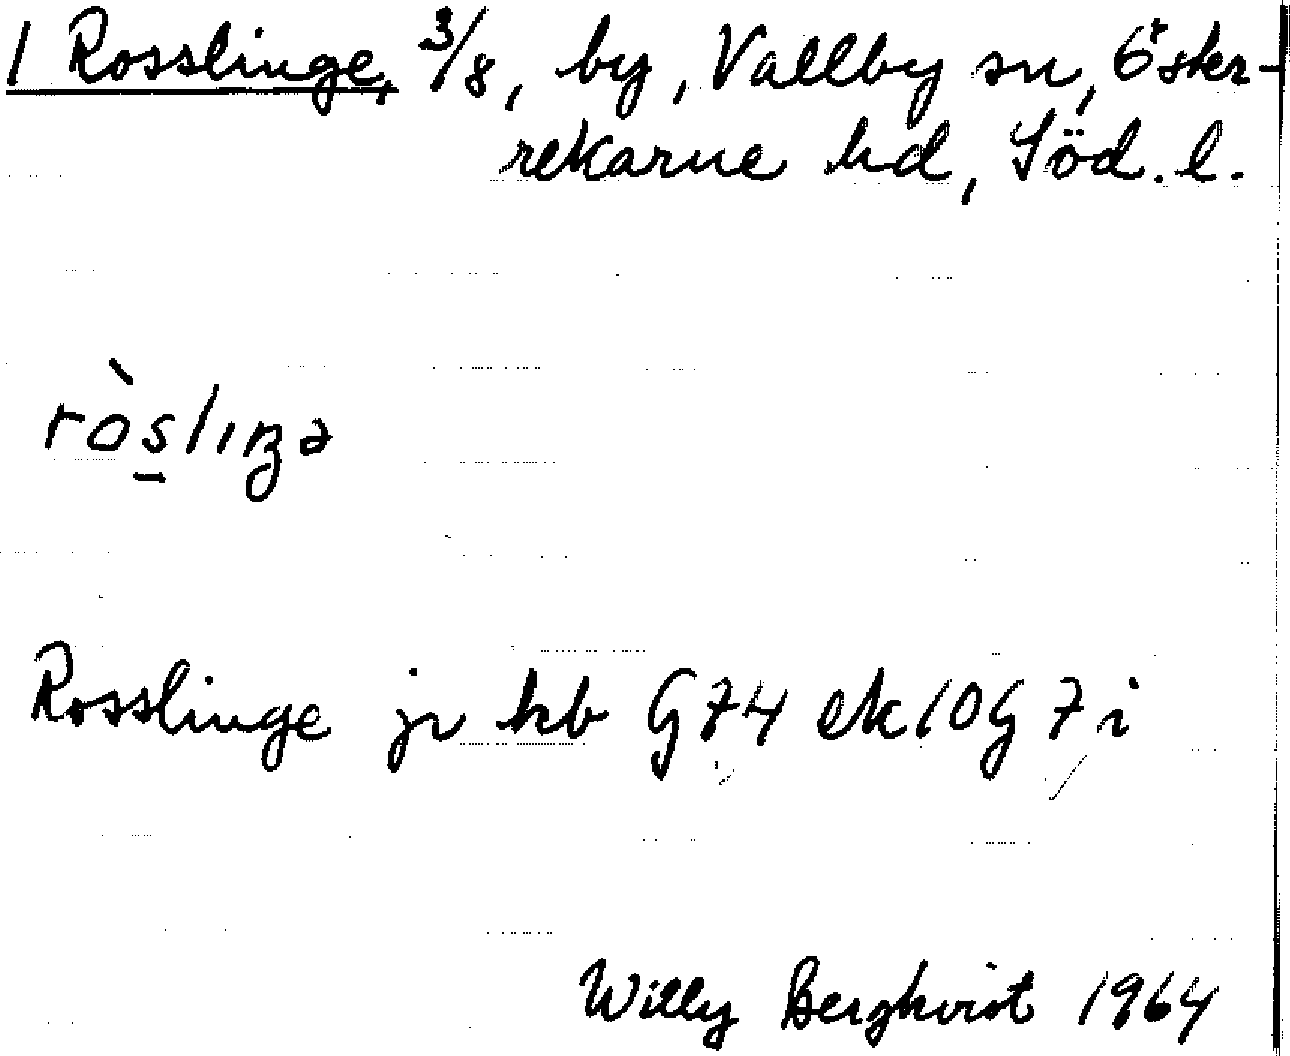 1 Rosslinge, 3/8, by, Vallby sn, Öster-
rekarne hd, Söd. l.
ròs̲lıŋə
Rosslinge jv kb G74 ek 10G 7i
Willy Bergkvist 1964